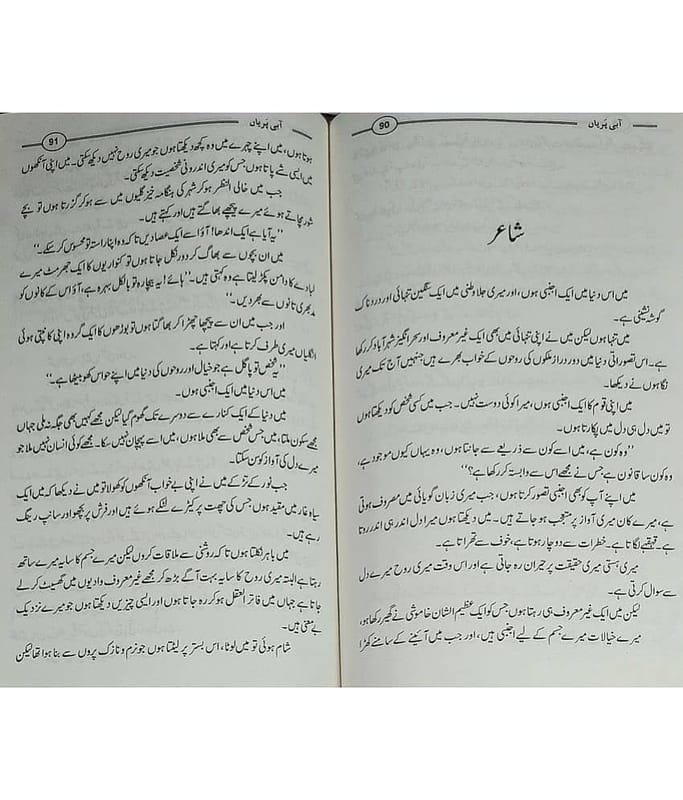 آبی پریاں
90
شاعر
میں اس دنیا میں ایک اجنبی ہوں، اور میری جلا وطنی میں ایک سنگین تنہائی اور دردناک
گوشہ نشینی ہے۔
میں تنہا ہوں لیکن میں نے اپنی تنہائی میں بھی ایک غیر معروف اور سحر انگیز شہر آباد کر رکھا
ہے۔ اس تصوراتی دنیا میں دور دراز ملکوں کی روحوں کے خواب بھرے ہیں جنہیں آج تک میری
نگاہوں نے دیکھا۔
میں اپنی قوم کا ایک اجنبی ہوں، میرا کوئی دوست نہیں۔ جب میں کسی شخص کو دیکھتا ہوں
تو میں دل ہی دل میں پکارتا ہوں۔
”وہ کون ہے، میں اسے کون سے ذریعے سے جانتا ہوں، وہ یہاں کیوں موجود ہے،
وہ کون سا قانون ہے جس نے مجھے اس سے وابستہ کر رکھا ہے؟“
میں اپنے آپ کو بھی اجنبی تصور کرتا ہوں، جب میری زبان گویائی میں مصروف ہوتی
ہے، میرے کان میری آواز پر متعجب ہو جاتے ہیں۔ میں دیکھتا ہوں میرا دل اندر ہی اندر روتا
ہے۔ قہقہے لگاتا ہے۔ خطرات سے دوچار ہوتا ہے، خوف سے تھراتا ہے۔
میری ہستی میری حقیقت پر حیران رہ جاتی ہے اور اس وقت میری روح میرے دل
سے سوال کرتی ہے۔
لیکن میں ایک غیر معروف ہی رہتا ہوں جس کو ایک عظیم الشان خاموشی نے گھیر رکھا ہو،
میرے خیالات میرے جسم کے لیے اجنبی ہیں، اور جب میں آئینے کے سامنے کھڑا
آبی پریاں
91
ہوتا ہوں، میں اپنے چہرے میں وہ کچھ دیکھتا ہوں جو میری روح نہیں دیکھ سکتی۔ میں اپنی آنکھوں
میں ایسی شے پاتا ہوں جس کو میری اندرونی شخصیت دیکھ سکتی۔
جب میں خالی النظر ہو کر شہر کی ہنگامہ خیز گلیوں میں سے ہو کر گزرتا ہوں تو بچے
شور مچاتے ہوئے میرے پیچھے بھاگتے ہیں اور کہتے ہیں۔
”یہ آیا ہے ایک اندھا! آؤ اسے ایک عصا دیں تا کہ وہ اپنا راستہ تو محسوس کر سکے۔“
میں ان بچوں سے بھاگ کر دور نکل جاتا ہوں تو کنواریوں کا ایک جھرمٹ میرے
لبادے کا دامن پکڑ لیتا ہے وہ کہتی ہیں۔ ”ہائے! یہ بیچارہ تو بالکل بہرہ ہے، آؤ اس کے کانوں کو
مدبھری تانوں سے بھر دیں۔“
اور جب میں ان سے پیچھا چھڑا کر بھاگتا ہوں تو بوڑھوں کا ایک گروہ اپنی کانپتی ہوئی
انگلیاں میری طرف کرتا ہے اور کہتا ہے۔
”یہ شخص تو پاگل ہے جو خیال اور روحوں کی دنیا میں اپنے حواس کھو بیٹھا ہے۔“
میں اس دنیا میں ایک اجنبی ہوں۔
میں دنیا کے ایک کنارے سے دوسرے تک گھوم گیا لیکن مجھے کہیں بھی جگہ نہ ملی جہاں
مجھے سکون ملتا، میں جس شخص سے بھی ملا ہوں، میں اسے پہچان نہیں سکا۔ مجھے کوئی انسان نہیں ملا جو
میرے دل کی آواز کو سن سکتا۔
جب نور کے تڑکے میں نے اپنی بے خواب آنکھوں کو کھولا تو میں نے دیکھا کہ میں ایک
سیاہ غار میں مقید ہوں جس کی چھت پر کیڑے لٹکے ہوئے ہیں اور فرش پر بچھو اور سانپ رینگ
رہے ہیں۔
میں باہر نکلتا ہوں تا کہ روشنی سے ملاقات کروں لیکن میرے جسم کا سایہ میرے ساتھ
رہتا ہے البتہ میری روح کا سایہ بہت آگے بڑھ کر مجھے غیر معروف وادیوں میں گھسیٹ کر لے
جاتا ہے جہاں میں فاتر العقل ہو کر رہ جاتا ہوں اور ایسی چیزیں دیکھتا ہوں جو میرے نزدیک
بے معنی ہیں۔
شام ہوئی تو میں لوٹا، اس بستر پر لیٹتا ہوں جو نرم و نازک پروں سے بنا ہوا تھا لیکن